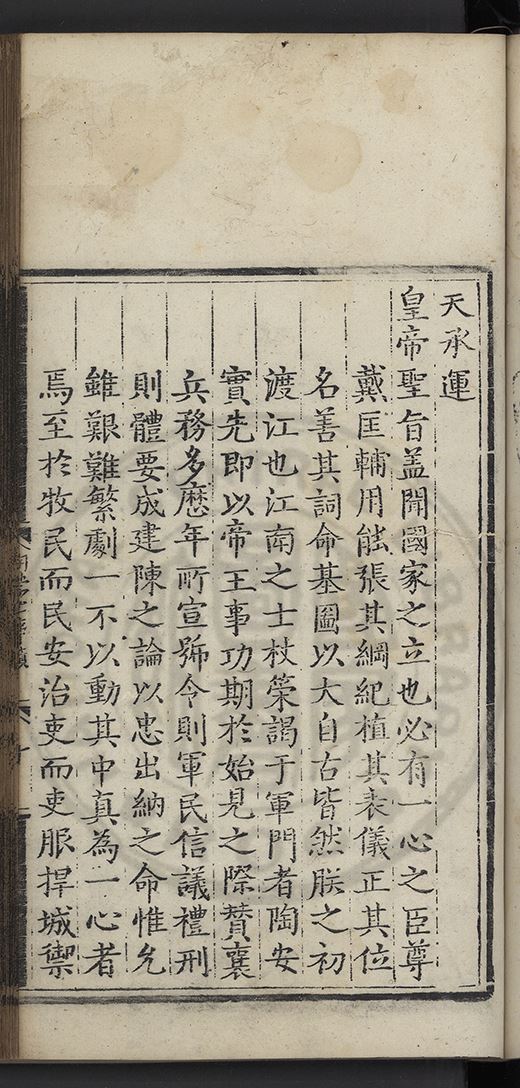 天承運
皇帝聖旨盖聞國家之立也必有一心之臣尊
戴匡輔用能張其綱紀植其表儀正其位
名善其詞命基圖以大自古皆然朕之初
渡江也江南之士杖策謁于軍門者陶安
實先即以帝王事功期於始見之際賛襄
兵務多歷年所宣號令則軍民信議禮刑
則體要成建陳之論以忠出納之命惟允
雖艱難繁劇一不以動其中真為一心者
焉至於牧民而民安治吏而吏服捍城禦